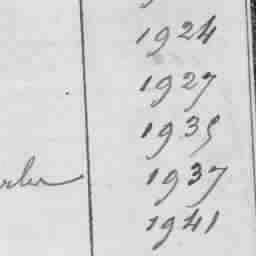 1924
1927
1935
1937
1941